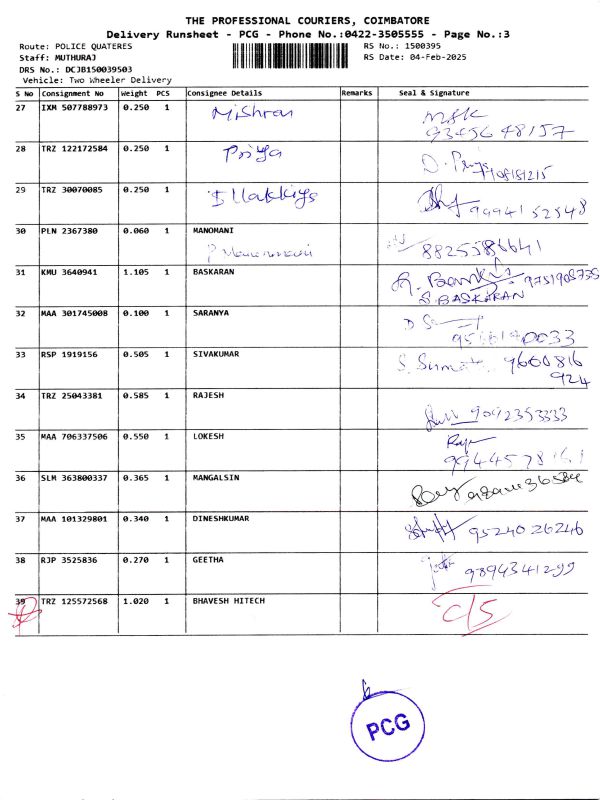 THE PROFESSIONAL COURIERS, COIMBATORE
Delivery Runsheet - PCG - Phone No.:0422-3505555 - Page No.:3
Route: POLICE QUATERES RS No.: 1500395
Staff: MUTHURAJ RS Date: 04-Feb-2025
DRS No.: DCJB150039503
Vehicle: Two Wheeler Delivery
S No Consignment No Weight PCS Consignee Details Remarks Seal & Signature
27 IXM 507788973 0.250 1 Mishran
9345648157
28 TRZ 122172584 0.250 1 Priya D. Priya
29 TRZ 30070085 0.250 1 9994152548
30 PLN 2367380 0.060 1 MANOMANI
8825586641
31 KMU 3640941 1.105 1 BASKARAN
S.BASKARAN
32 MAA 301745008 0.100 1 SARANYA
33 RSP 1919156 0.505 1 SIVAKUMAR
9600816
924
34 TRZ 25043381 0.585 1 RAJESH
9092353333
35 MAA 706337506 0.550 1 LOKESH
36 SLM 363800337 0.365 1 MANGALSIN
37 MAA 101329801 0.340 1 DINESHKUMAR 9524026246
38 RJP 3525836 0.270 1 GEETHA 9894341299
39 TRZ 125572568 1.020 1 BHAVESH HITECH C/S
PCG